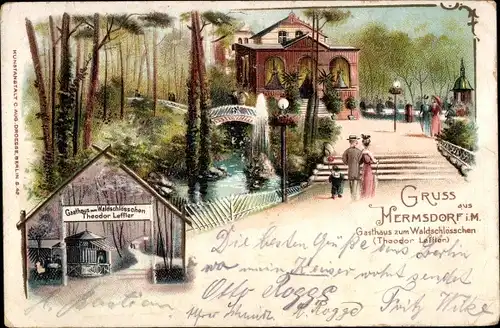 KUNSTANSTALT C. AUG. DROESSE, BERLIN S. 42
Gasthaus zum Waldschlösschen
Theodor Leffler
GRUSS
aus
HERMSDORF i. M.
Gasthaus zum Waldschlösschen
(Theodor Leffler)
Die besten Grüße aus Berlin
wo mein wohnt sendet
Otto Rogge
Fritz Wilke
Rogge